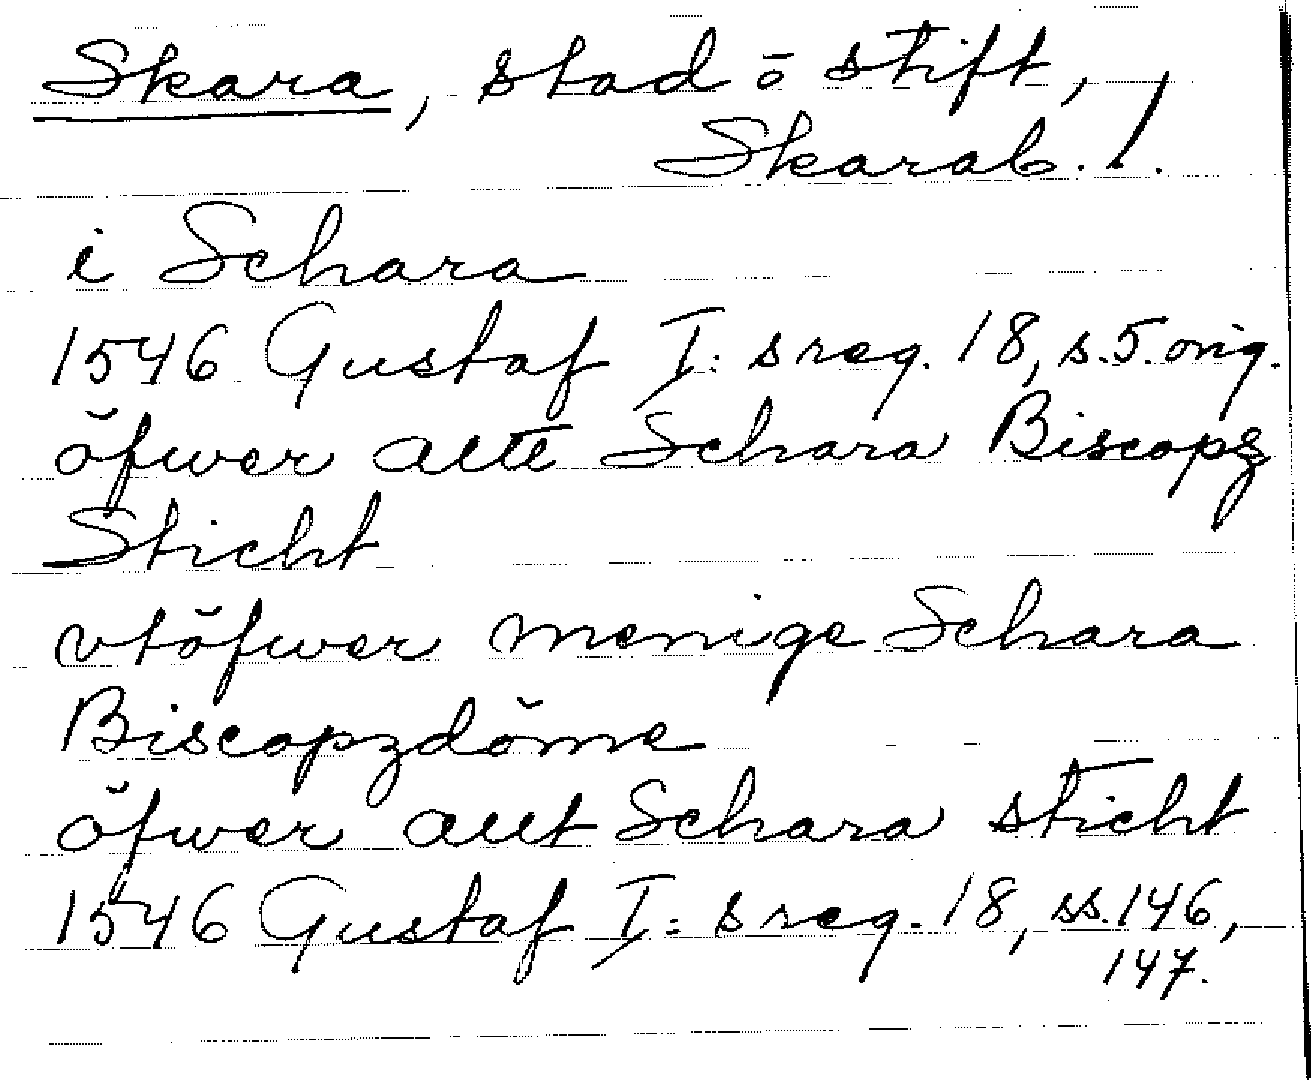 Skara, stad o stift,
Skarab. l.
i Schara
1546 Gustaf I:s reg. 18, s.5. orig.
öfwer altt Schara Biscopz
Sticht
vtöfwer menige Schara
Biscopzdöme
öfwer allt Schara sticht
1546 Gustaf I:s reg. 18, ss.146,
147.